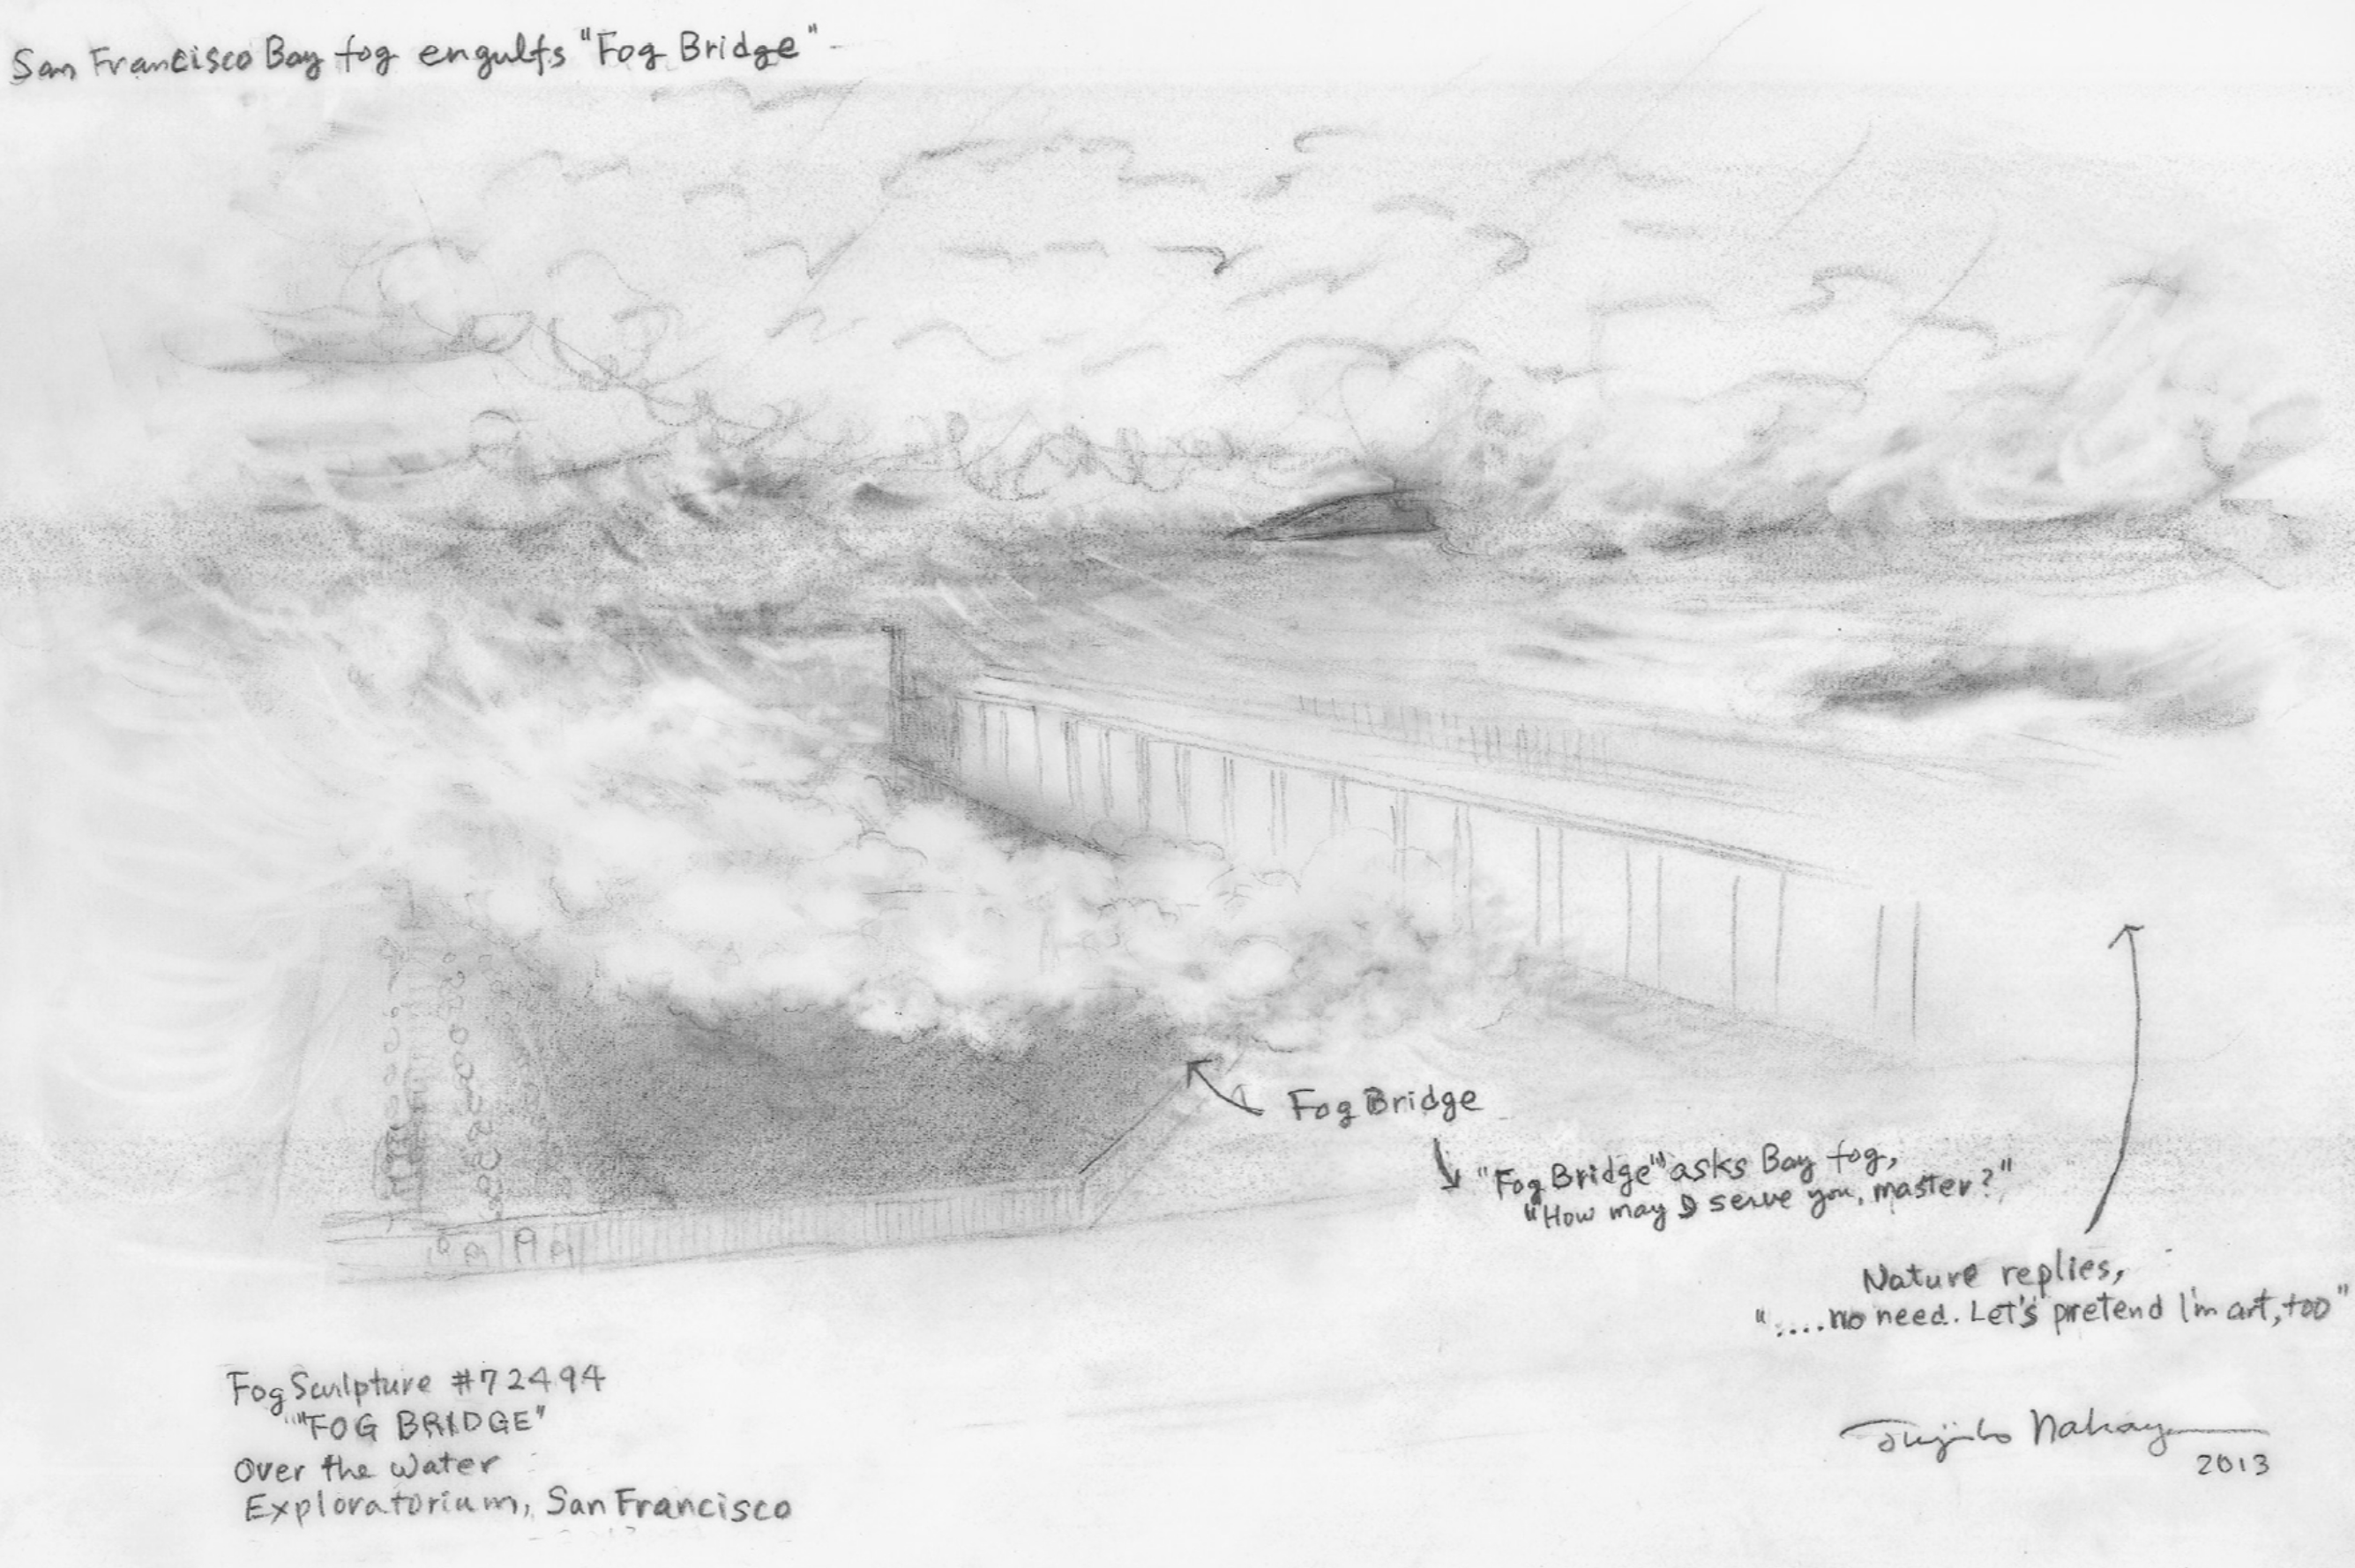 San Francisco Bay fog engulfs "Fog Bridge"
Fog Bridge
"Fog Bridge" asks Bay fog,
"How may I serve you, master?"
Nature replies,
"....no need. Let's pretend I'm art, too"
Fog Sculpture #72494
"FOG BRIDGE"
Over the Water
Exploratorium, San Francisco
Fujiko Nakaya
2013